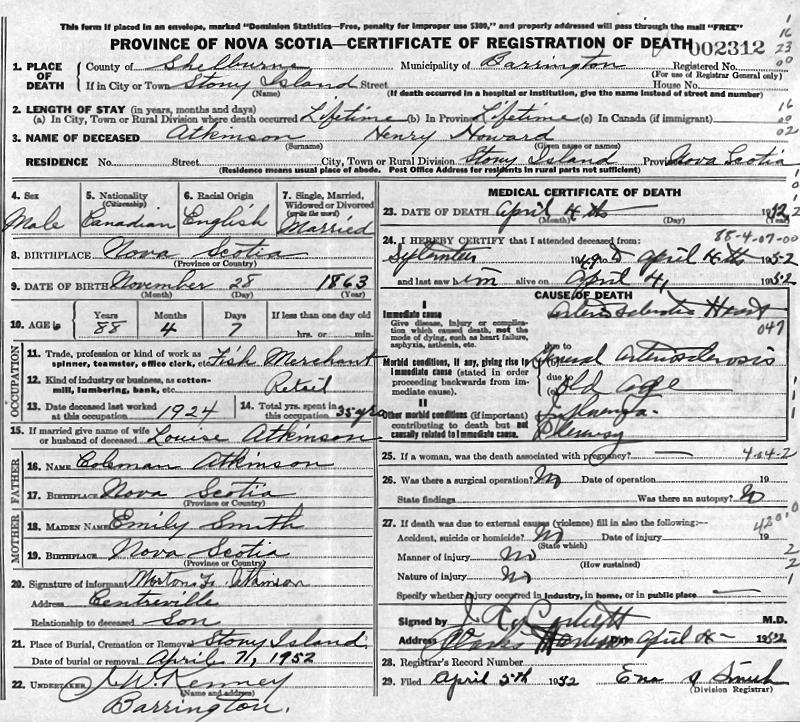 This form if placed in an envelope, marked "Dominion Statistics—Free, penalty for improper use $300," and properly addressed will pass through the mail "FREE"
PROVINCE OF NOVA SCOTIA—CERTIFICATE OF REGISTRATION OF DEATH 002312
1. PLACE OF DEATH County of Shelburne Municipality of Barrington Registered No.
(For use of Registrar General only)
If in City or Town Stony Island Street House No.
(Name) (If death occurred in a hospital or institution, give the name instead of street and number)
2. LENGTH OF STAY (in years, months and days)
(a) In City, Town or Rural Division where death occurred Lifetime (b) In Province Lifetime (c) In Canada (if immigrant)
3. NAME OF DECEASED Atkinson Henry Howard
(Surname) (Given name or names)
RESIDENCE No. Street City, Town or Rural Division Stony Island Province Nova Scotia
(Residence means usual place of abode. Post Office Address for residents in rural parts not sufficient)
4. Sex Male
5. Nationality (Citizenship) Canadian
6. Racial Origin English
7. Single, Married, Widowed or Divorced (write the word) Married
8. BIRTHPLACE Nova Scotia
(Province or Country)
9. DATE OF BIRTH November 28 1863
(Month) (Day) (Year)
10. AGE Years 88 Months 4 Days 7 If less than one day old hrs. or min.
OCCUPATION
11. Trade, profession or kind of work as spinner, teamster, office clerk, etc. Fish Merchant
12. Kind of industry or business, as cotton-mill, lumbering, bank, etc. Retail
13. Date deceased last worked at this occupation 1924
14. Total yrs. spent in this occupation 35 yrs
15. If married give name of wife or husband of deceased Louise Atkinson
FATHER
16. NAME Coleman Atkinson
17. BIRTHPLACE Nova Scotia
(Province or Country)
MOTHER
18. MAIDEN NAME Emily Smith
19. BIRTHPLACE Nova Scotia
(Province or Country)
20. Signature of informant Morton Atkinson
Address Centreville
Relationship to deceased Son
21. Place of Burial, Cremation or Removal Stony Island
Date of burial or removal April 7, 1952
22. UNDERTAKER J.W. Kenney
(Name and address)
Barrington.
MEDICAL CERTIFICATE OF DEATH
23. DATE OF DEATH April 4th 1952
(Month) (Day)
88-4-07-00
24. I HEREBY CERTIFY that I attended deceased from:
April 4th 1952
and last saw him alive on April 4, 1952
CAUSE OF DEATH
I
Immediate cause
Give disease, injury or complication which caused death, not the mode of dying, such as heart failure, asphyxia, asthenia, etc.
Arterio Sclerotic Heart
047
due to
Morbid conditions, if any, giving rise to immediate cause (stated in order proceeding backwards from immediate cause).
General Arteriosclerosis
due to
Old Age
II
Other morbid conditions (if important) contributing to death but not causally related to immediate cause.
Influenza.
Pleurisy
25. If a woman, was the death associated with pregnancy? — 4-04-2
26. Was there a surgical operation? No Date of operation 19
State findings Was there an autopsy? No
27. If death was due to external causes (violence) fill in also the following:—
4200
Accident, suicide or homicide? No Date of injury 19
(State which)
Manner of injury No
(How sustained)
Nature of injury No
Specify whether injury occurred in industry, in home, or in public place —
Signed by M.D.
Address Date April 4 1952
28. Registrar's Record Number
29. Filed April 5th 1952 Smith
(Division Registrar)